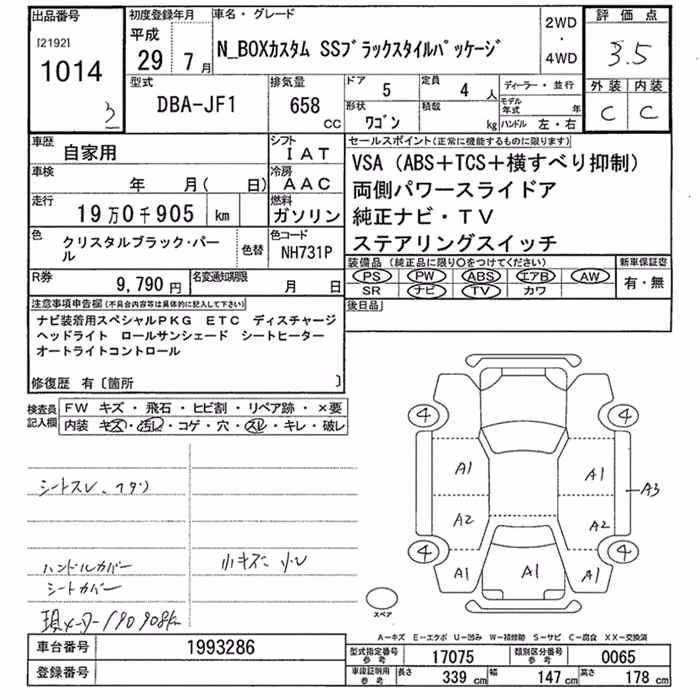 出品番号
[2192]
1014
3
初度登録年月
平成
29年
7月
車名・グレード
N_BOXカスタム SSブラックスタイルパッケージ
2WD
・
4WD
評価点
3.5
外装 内装
C C
型式
DBA-JF1
排気量
658
CC
ドア 5
定員 4人
形状 ワゴン
積載 kg
ディーラー・並行
モデル年式 年
ハンドル 左・右
車歴 自家用
シフト IAT
車検 年 月( 日)
冷房 AAC
走行 19万0千905 km
燃料 ガソリン
色 クリスタルブラック・パール
色替
色コード NH731P
R券 9,790円
名変通知期限 月 日
セールスポイント(正常に機能するものに限ります)
VSA(ABS+TCS+横すべり抑制)
両側パワースライドア
純正ナビ・TV
ステアリングスイッチ
装備品(純正品に限り○をつけてください)
PS PW ABS エアB AW
SR ナビ TV カワ
新車保証書
有・無
後日品
注意事項申告欄(不具合内容等は具体的に記入して下さい)
ナビ装着用スペシャルPKG ETC ディスチャージ
ヘッドライト ロールサンシェード シートヒーター
オートライトコントロール
修復歴 有〔箇所 〕
検査員記入欄
FW キズ・飛石・ヒビ割・リペア跡・×要
内装 キズ・汚れ・コゲ・穴・スレ・キレ・破レ
シートスレ、
ハンドルカバー
シートカバー
小キズ、小U
現メーター190908km
4 4
A1 A1 A3
A2 A2
4 4
A1 A1 A1
スペア
A-キズ E-エクボ U-凹み W-補修跡 S-サビ C-腐食 XX-交換済
車台番号 1993286
登録番号
型式指定番号参考 17075
類別区分番号参考 0065
車検証明用参考 長さ 339cm 幅 147cm 高さ 178cm